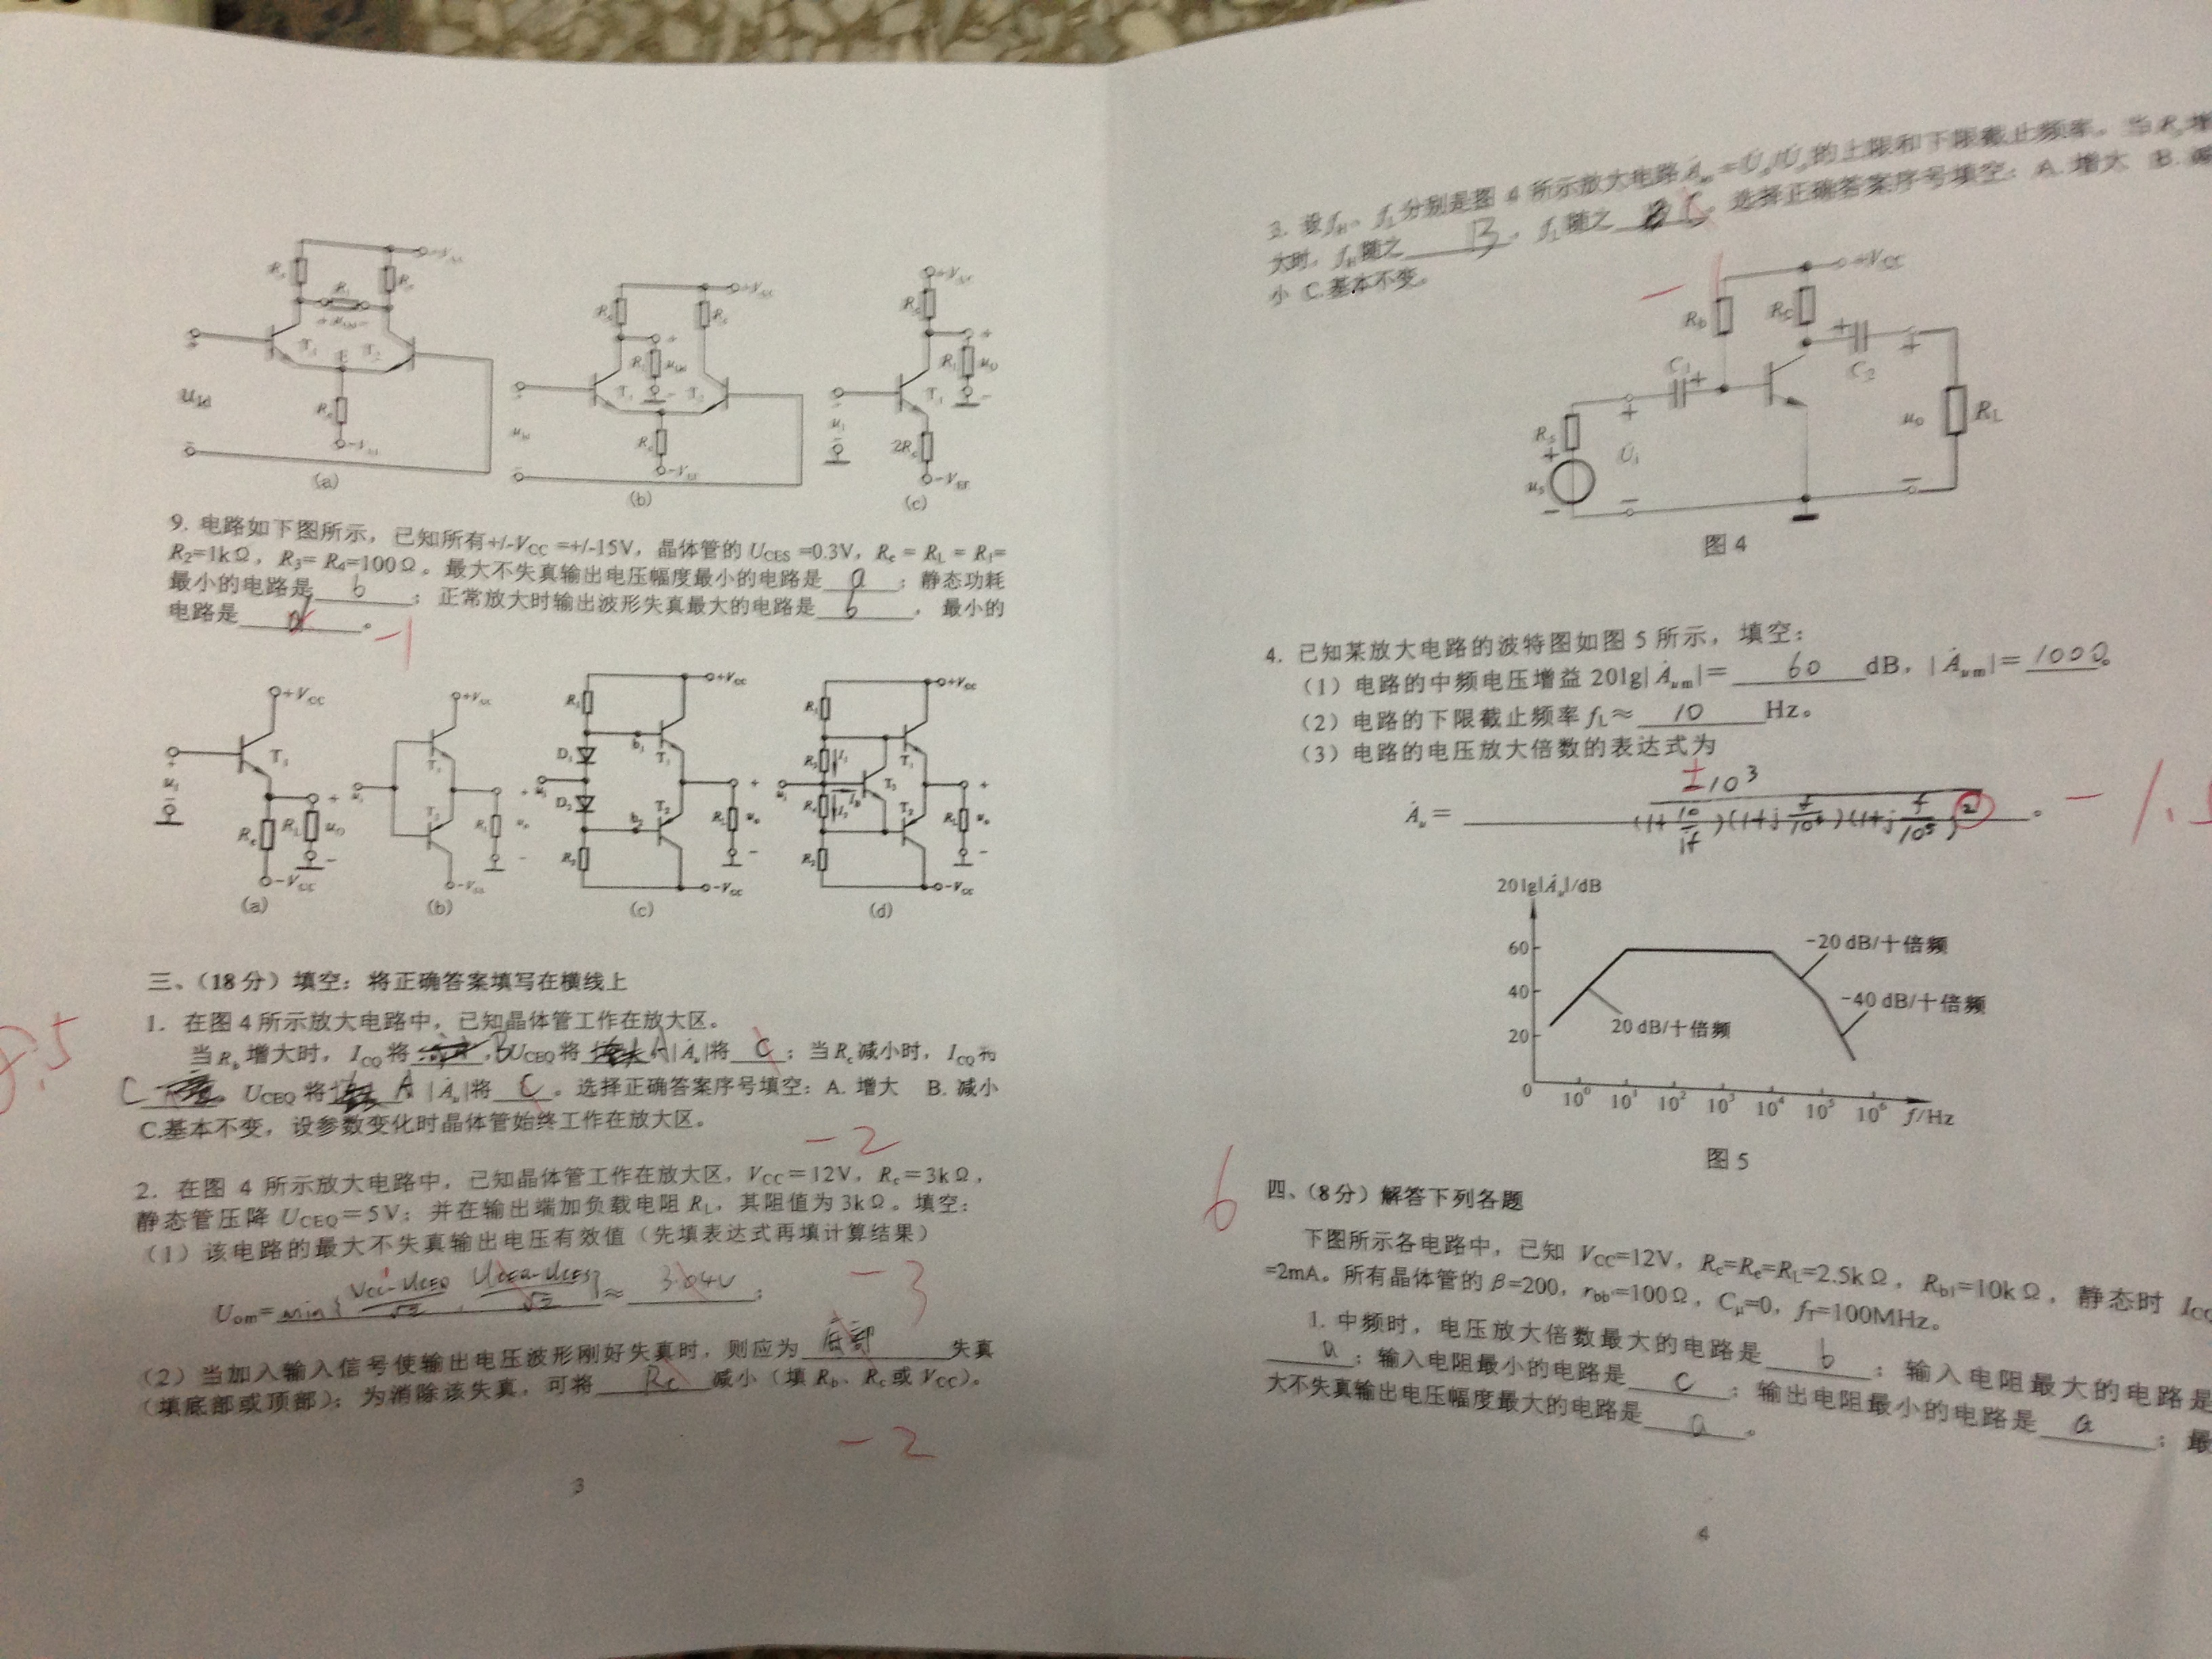 (a)
(b)
(c)
9. 电路如下图所示，已知所有+/-VCC =+/-15V，晶体管的 UCES =0.3V，Rc = RL = R1=
R2=1kΩ，R3= R4=100Ω。最大不失真输出电压幅度最小的电路是 a ；静态功耗
最小的电路是 b ；正常放大时输出波形失真最大的电路是 b ，最小的
电路是 d 。 -1
(a)
(b)
(c)
(d)
三、（18分）填空：将正确答案填写在横线上
1. 在图 4 所示放大电路中，已知晶体管工作在放大区。
当 Rb 增大时，ICQ 将 B，UCEQ 将 A，|Au|将 C ；当 Rc 减小时，ICQ 将
C 。UCEQ 将 A |Au|将 C 。选择正确答案序号填空：A. 增大 B. 减小
C.基本不变，设参数变化时晶体管始终工作在放大区。
-2
2. 在图 4 所示放大电路中，已知晶体管工作在放大区，VCC＝12V，Rc＝3kΩ，
静态管压降 UCEQ＝5V；并在输出端加负载电阻 RL，其阻值为 3kΩ。填空：
（1）该电路的最大不失真输出电压有效值（先填表达式再填计算结果）
Uom= min{ (VCC-UCEQ)/√2 , (UCEQ-UCES)/√2 } ≈ 3.04V ；
-3
（2）当加入输入信号使输出电压波形刚好失真时，则应为 底部 失真
（填底部或顶部）；为消除该失真，可将 Rc 减小（填 Rb、Rc 或 VCC）。
-2
3
3. 设 fH、fL 分别是图 4 所示放大电路 =Uo/Us 的上限和下限截止频率。当
大时，fH 随之 B ，fL 随之 C 。选择正确答案序号填空：A. 增大 B. 减
小 C.基本不变。
+VCC
Rb
Rc
C1
C2
Rs
Ui
us
uo
RL
图 4
4. 已知某放大电路的波特图如图 5 所示，填空：
（1）电路的中频电压增益 20lg|Aum|＝ 60 dB，|Aum|＝ 1000 。
（2）电路的下限截止频率 fL≈ 10 Hz。
（3）电路的电压放大倍数的表达式为
Au＝ ±10³ / (1+10/jf)(1+j f/10⁴)(1+j f/10⁵)² 。
20lg|Au|/dB
60
40
20
0
-20 dB/十倍频
-40 dB/十倍频
20 dB/十倍频
10⁰ 10¹ 10² 10³ 10⁴ 10⁵ 10⁶ f/Hz
图 5
6
四、（8分）解答下列各题
下图所示各电路中，已知 VCC=12V，Rc=Re=RL=2.5kΩ，Rb1=10kΩ，静态时 ICQ
=2mA。所有晶体管的 β=200，rbb'=100Ω，Cμ=0，fT=100MHz。
1. 中频时，电压放大倍数最大的电路是 b ；输入电阻最大的电路是
a ；输入电阻最小的电路是 c ；输出电阻最小的电路是 a ；最
大不失真输出电压幅度最大的电路是 a 。
4